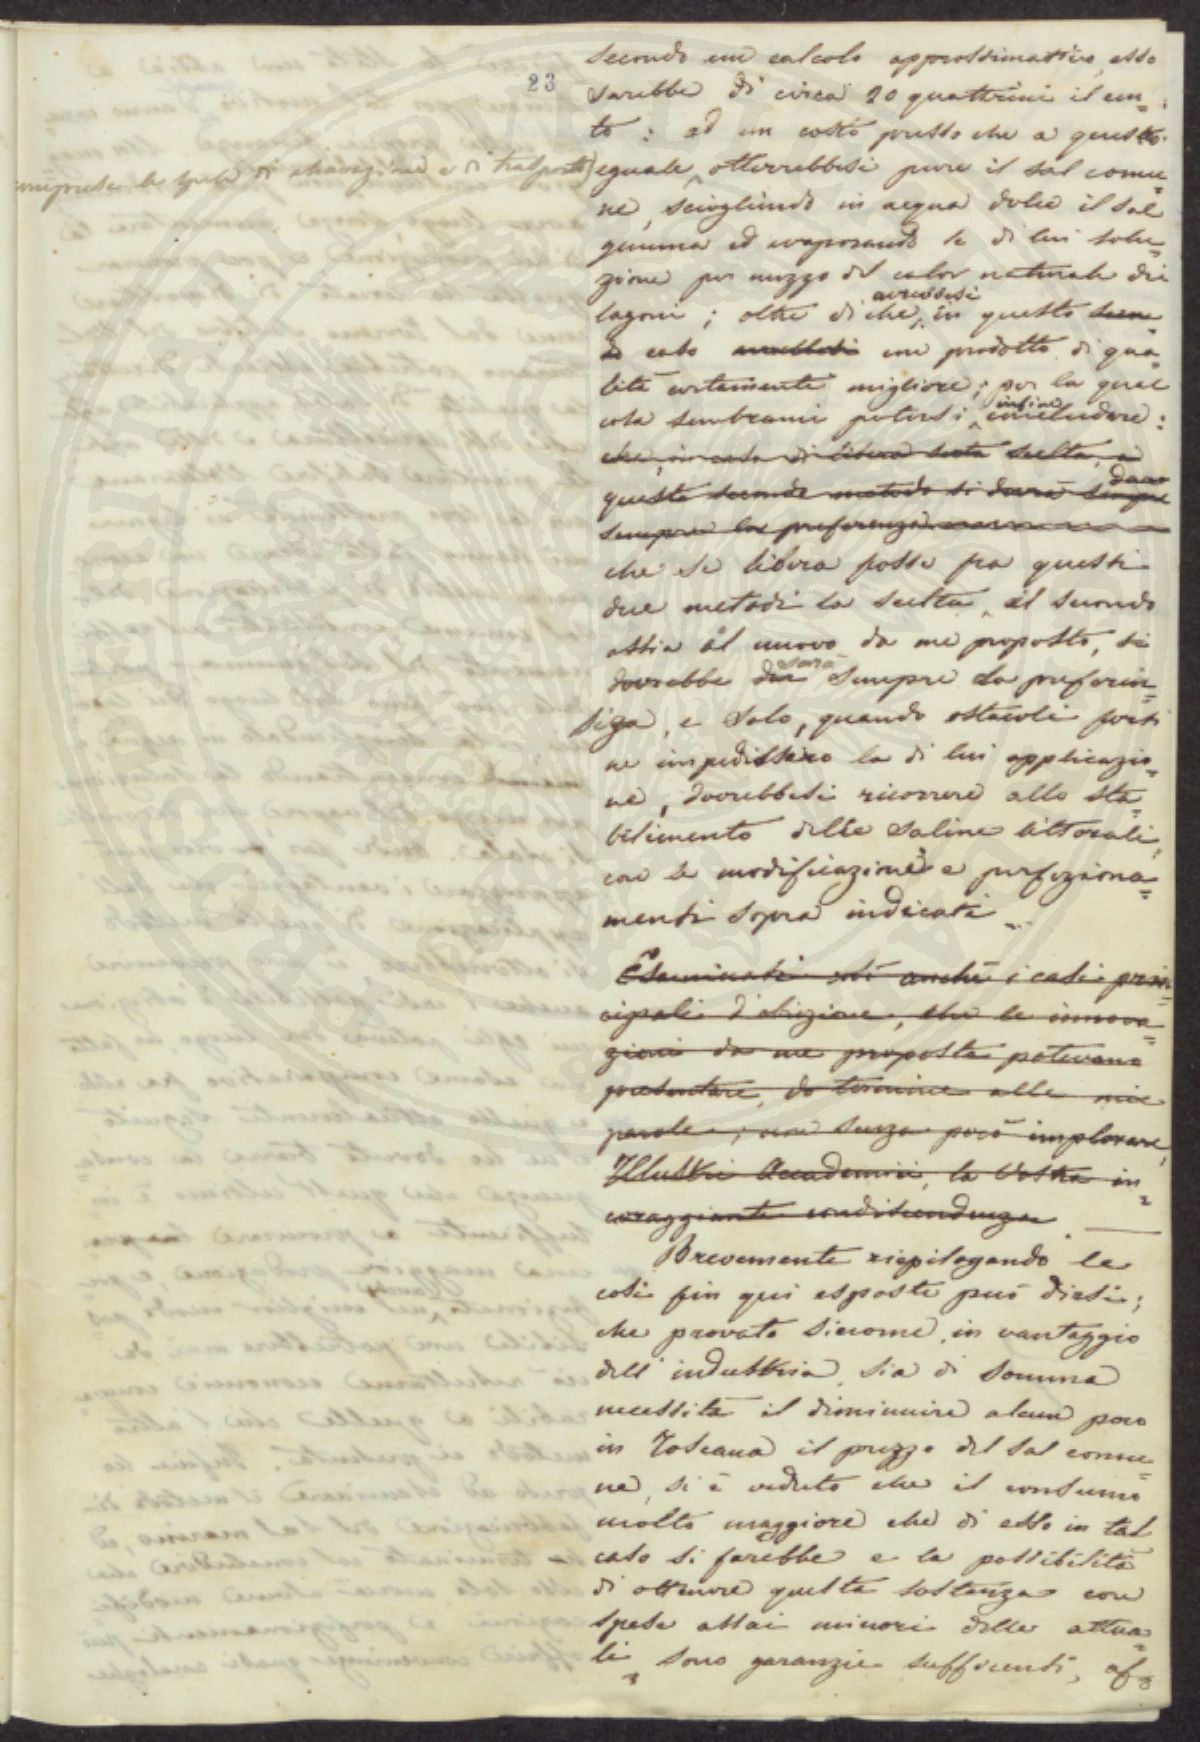 23
secondo un calcolo approssimativo, esso
sarebbe di circa 20 quattrini il cen=
to : ad un costo presso che a questo
comprese le spese di escavazione e di trasporto)
eguale, otterrebbesi pure il sal comu=
ne, sciogliendo in acqua dolce il sal
gemma ed evaporando la di lui solu=
zione per mezzo del calor naturale dei
avrebbesi
lagoni ; oltre di che, in questo secon=
do caso avrebbesi un prodotto di qua=
lità certamente migliore; per la qual
infine
cosa sembrami potersi concludere :
che, in caso di libera scelta, a
dare
questo secondo metodo si dovrà sempre
sempre la preferenza
che se libera fosse fra questi
due metodi la scelta, al secondo
ossia al nuovo da me proposto, si
darà
dovrebbe dar sempre la preferen=
za, e solo, quando ostacoli forti
ne impedissero la di lui applicazio=
ne, dovrebbesi ricorrere allo sta=
bilimento delle saline littorali,
con le modificazioni e perfeziona=
menti sopra indicati.
Esaminati così anche i casi prin=
cipali d'obiezione, che le innova=
zioni da me proposte potevano
presentare, do termine alle mie
parole ; non senza però implorare,
Illustri Accademici, la Vostra in=
coraggiante condiscendenza.
Brevemente riepilogando le
cose fin qui esposte può dirsi;
che provato siccome, in vantaggio
dell'industria, sia di somma
necessità il diminuire alcun poco
in Toscana il prezzo del sal comu=
ne, si è veduto che il consumo
molto maggiore che di esso in tal
caso si farebbe e la possibilità
di ottenere questa sostanza con
spese assai minori delle attua=
li, sono garanzie sufficenti, af=